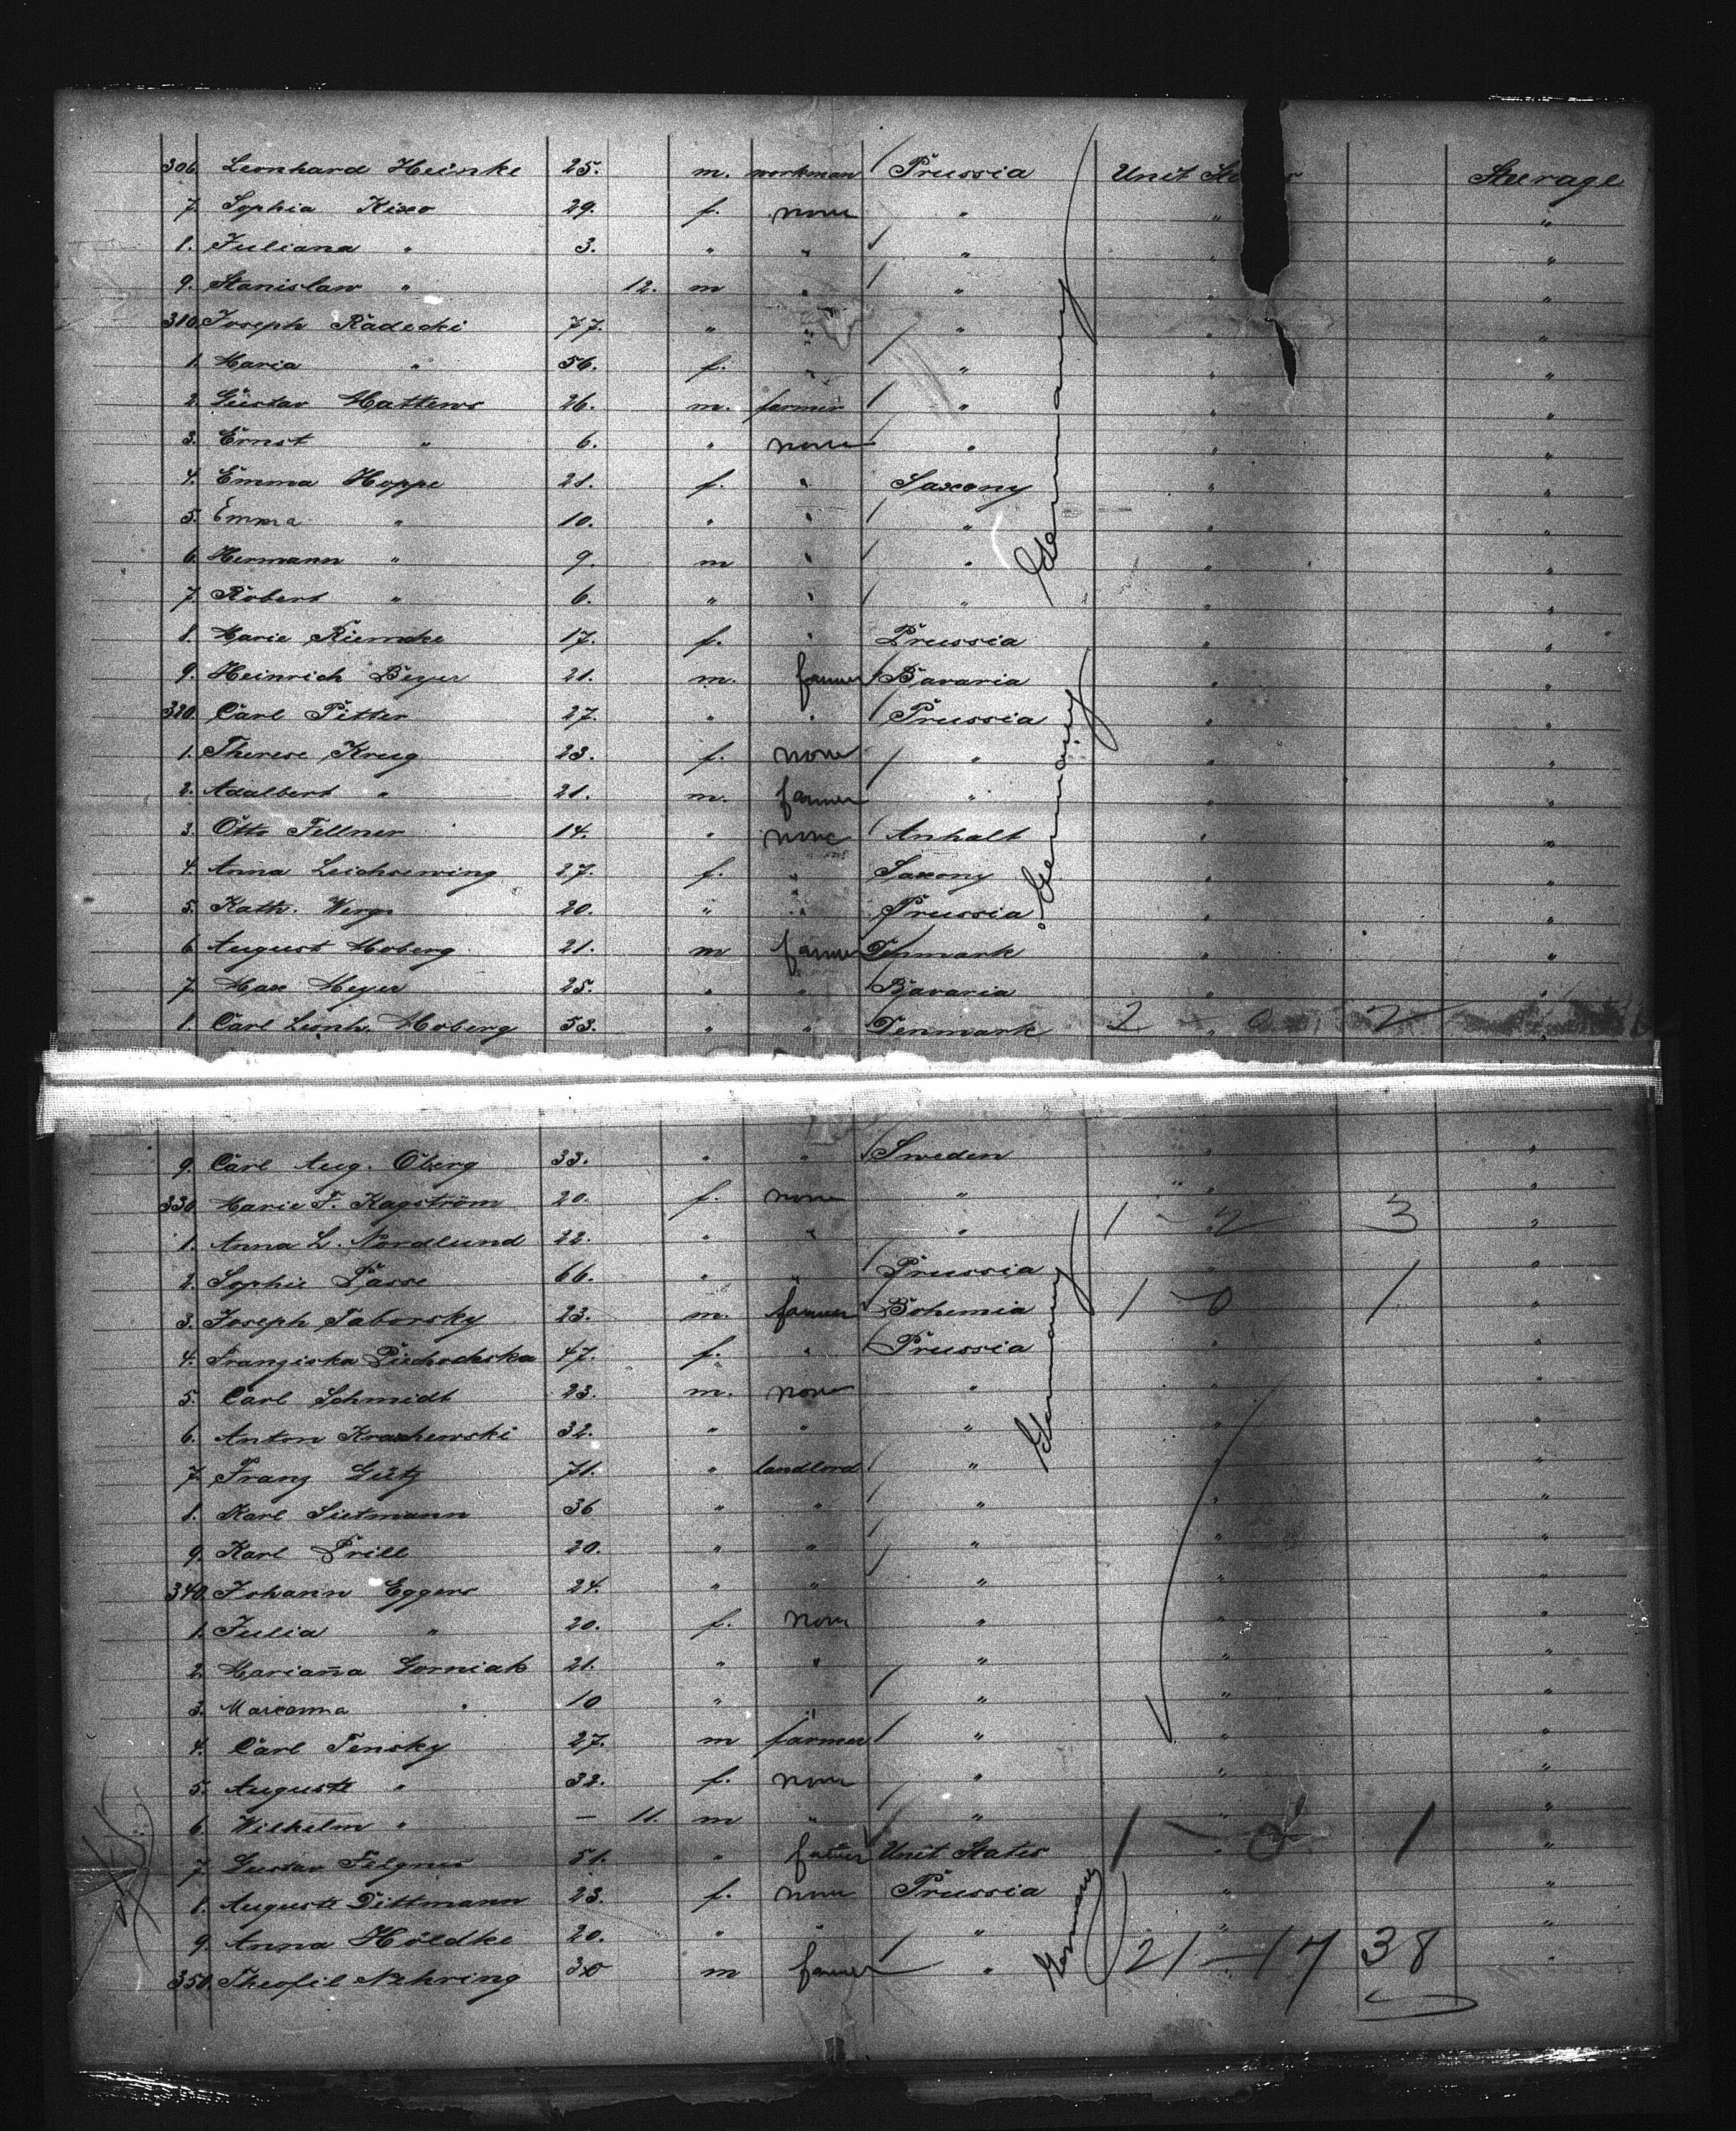 306. Leonhard Heinke 25. m. workman Prussia Unit St s Steerage
7. Sophia Kixo 29. f. none " " "
8. Juliana " 3. " " " " "
9. Stanislaw " 12. m " " " "
310. Joseph Radecki 77. " " " " "
1. Maria " 56. f. " " " "
2. Gustav Mattews 26. m. farmer " " "
3. Ernst " 6. " none " " "
4. Emma Hoppe 21. f. " Saxony " "
5. Emma " 10. " " " " "
6. Hermann " 9. m " " " "
7. Robert " 6. " " " " "
Germany
8. Marie Riemcke 17. f. " Prussia " "
9. Heinrich Beyer 21. m. farmer Bavaria " "
320. Carl Pitter 27. " " Prussia " "
1. Therese Krug 23. f. none " " "
2. Adalbert " 21. m. farmer " " "
3. Otto Fellner 14. " none Anhalt " "
4. Anna Leichsenring 27. f. " Saxony " "
5. Kath. 20. " " Prussia " "
Germany
6. August Moberg 21. m farmer Denmark " "
7. Max Meyer 25. " " Bavaria " "
8. Carl Leonh. Moberg 53. " " Denmark 2 - 0 2 "
9. Carl Aug. Öberg 33. " " Sweden " "
330. Marie F. Kagström 20. f. none " " "
1. Anna L. Nordlund 22. " " " 1 - 2 3 "
2. Sophie Passe 66. " " Prussia " "
3. Joseph Taborsky 23. m. farmer Bohemia 1 - 0 1 "
4. Franziska Piechochska 47. f. " Prussia " "
5. Carl Schmidt 23. m. none " " "
6. Anton Kraschewski 32. " " " " "
Germany
7. Franz Gütz 71. " landlord " " "
8. Karl Sietmann 36 " " " " "
9. Karl Prill 20. " " " " "
340. Johann Eggers 24. " " " " "
1. Julia " 20. f. none " " "
2. Marianna Gorniak 21. " " " " "
3. Marianna " 10 " " " " "
4. Carl Tensky 27. m farmer " " "
5. Auguste " 32. f. none " " "
6. Wilhelm " - 11. m " " " "
7. Gustav Felgner 51. " farmer Unit States 1 - 0 1 "
8. Auguste Dittmann 23. f. none Prussia " "
9. Anna Höldke 20. " " " " "
350. Theofil Nehring 30 m farmer " 21 - 17 38 "
Germany